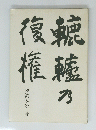 轆轤乃
復權